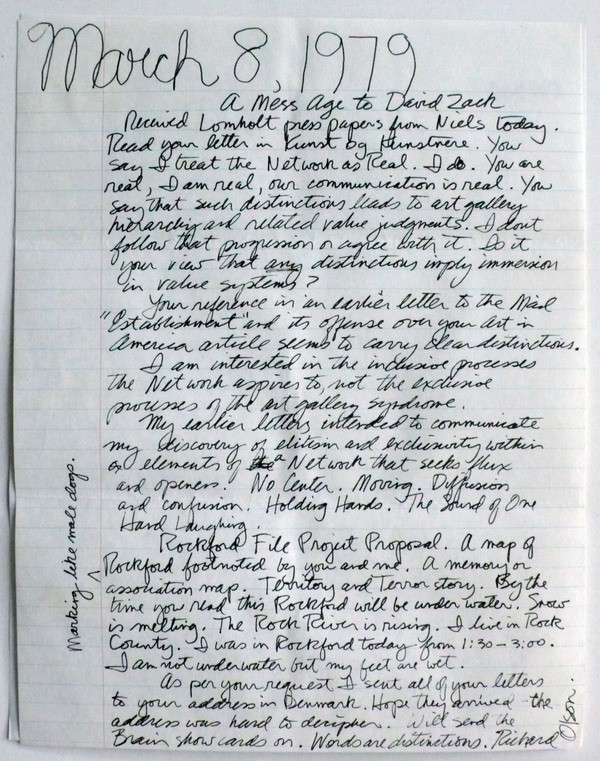 March 8, 1979
A Mess Age to David Zack
Received Lomholt press papers from Niels today.
Read your letter in Kunst og Kunstnere. You
say I treat the Network as Real. I do. You are
real, I am real, our communication is real. You
say that such distinctions leads to art gallery
hierarchy and related value judgments. I dont
follow that progression or agree with it. Is it
your view that any distinctions imply immersion
in value systems?
Your reference in an earlier letter to the Mail
"Establishment" and its offense over your Art in
America article seems to carry clear distinctions.
I am interested in the inclusive processes
the Network aspires to, not the exclusive
processes of the art gallery syndrome.
My earlier letters intended to communicate
my discovery of elitism and exclusivity within
elements of a Network that seeks flux
and openness. No Center. Moving. Diffusion
and confusion. Holding Hands. The Sound of One
Hand Laughing.
Rockford File Project Proposal. A map of
Rockford footnoted by you and me. A memory or
association map. Territory and Terror story. By the
time you read this Rockford will be under water. Snow
is melting. The Rock River is rising. I live in Rock
County. I was in Rockford today from 1:30 - 3:00.
I am not underwater but my feet are wet.
As per your request I sent all of your letters
to your address in Denmark. Hope they arrived - the
address was hard to decipher. Will send the
Brain show cards on. Words are distinctions. Richard
Olson.
Marking like male dogs.